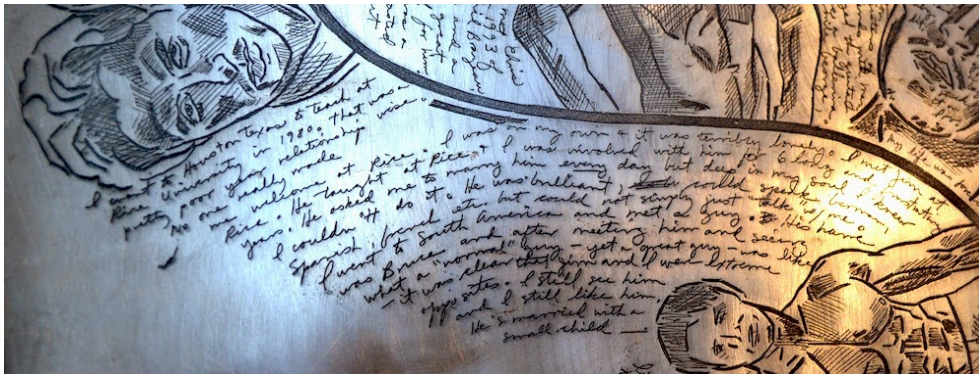 I went to Houston Texas to teach at
Rice University in 1980. That was a
pretty poor year relationship wise.
No one really made
me welcome at Rice. I was on my own & it was terribly lonely. I met Jim at
Rice. He taught at Rice & I was involved with him for 6 long,
yrs. He asked me to marry him every day but deep in my soul I knew
I couldn't do it. He was brilliant, could speak
Spanish, french, etc. but could not simply just talk to me.
I went to South America and met a guy. His name
was Bruce and after meeting him and seeing
what a "normal" guy - yet a great guy - was like
- it was clear that Jim and I were extreme
opposites. I still see him
and I still like him.
He's married with a
small child —
1973
and a
for him
my life was